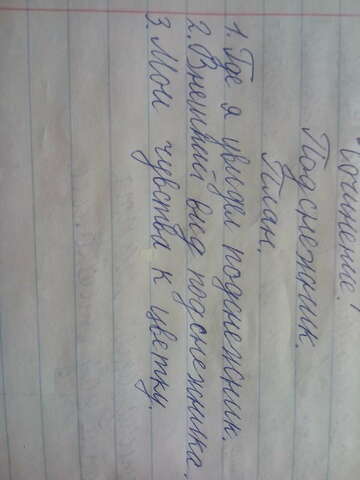 Сочинение.
Подснежник.
План.
1. Где я увидел подснежник.
2. Внешний вид подснежника.
3. Мои чувства к цветку.